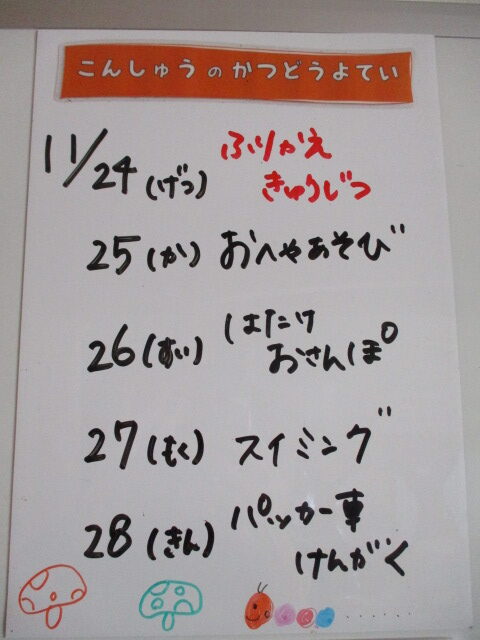 こんしゅうのかつどうよてい
11/24(げつ) ふりかえ
きゅうじつ
25(か) おへやあそび
26(すい) はたけ
おさんぽ
27(もく) スイミング
28(きん) パッカー車
けんがく